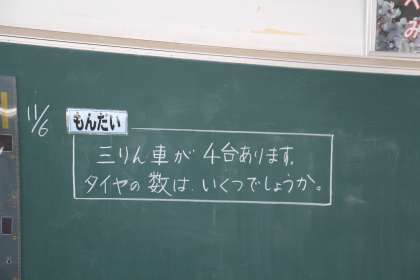 11/6
もんだい
三りん車が4台あります。
タイヤの数は、いくつでしょうか。